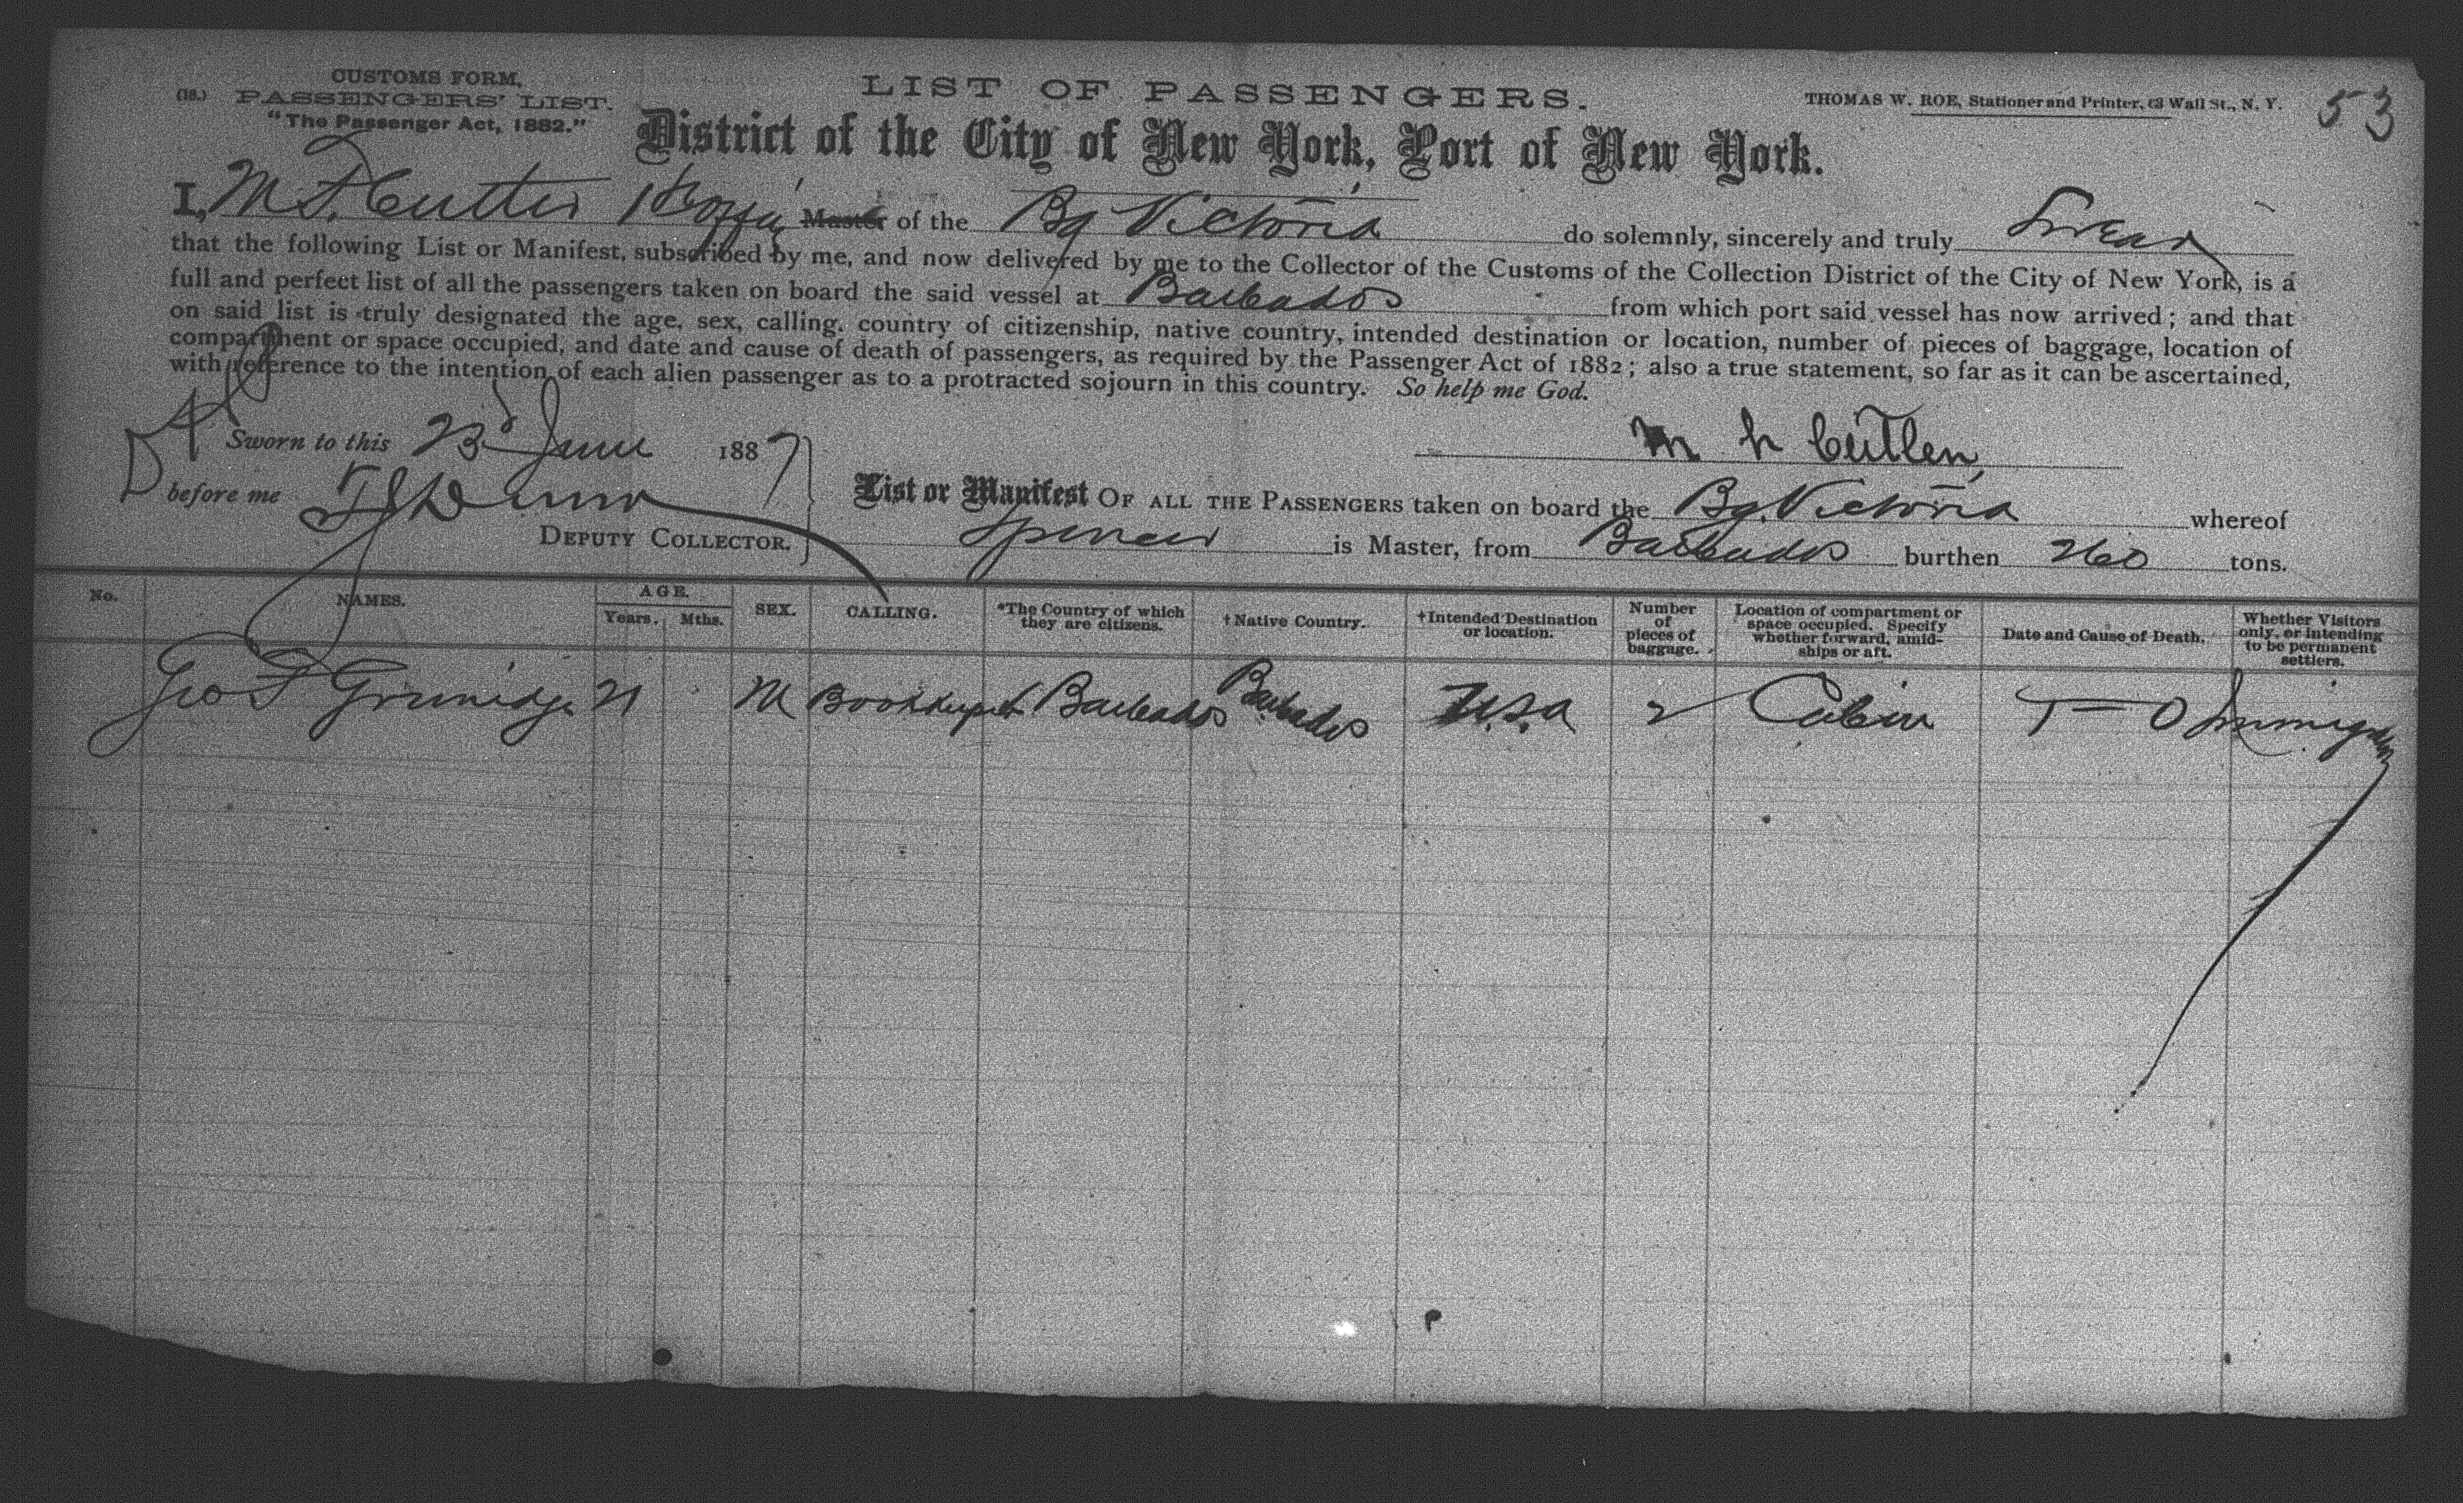 CUSTOMS FORM,
(18.) PASSENGERS' LIST.
"The Passenger Act, 1882."
LIST OF PASSENGERS.
THOMAS W. ROE, Stationer and Printer, 63 Wall St., N. Y.
53
District of the City of New York, Port of New York.
I, M Master of the Bg Victoria do solemnly, sincerely and truly Swear
that the following List or Manifest, subscribed by me, and now delivered by me to the Collector of the Customs of the Collection District of the City of New York, is a
full and perfect list of all the passengers taken on board the said vessel at Barbados from which port said vessel has now arrived; and that
on said list is truly designated the age, sex, calling, country of citizenship, native country, intended destination or location, number of pieces of baggage, location of
compartment or space occupied, and date and cause of death of passengers, as required by the Passenger Act of 1882; also a true statement, so far as it can be ascertained,
with reference to the intention of each alien passenger as to a protracted sojourn in this country. So help me God.
Sworn to this 23d June 1887
M Cutler
before me
DEPUTY COLLECTOR.
List or Manifest OF ALL THE PASSENGERS taken on board the Bg. Victoria whereof
Spencer is Master, from Barbados burthen 260 tons.
No. NAMES. AGE. Years. Mths. SEX. CALLING. *The Country of which they are citizens. †Native Country. †Intended Destination or location. Number of pieces of baggage. Location of compartment or space occupied. Specify whether forward, amidships or aft. Date and Cause of Death. Whether Visitors only, or intending to be permanent settlers.
Geo F 21 M Bookkeeper Barbados Barbados U.S.A 2 Cabin